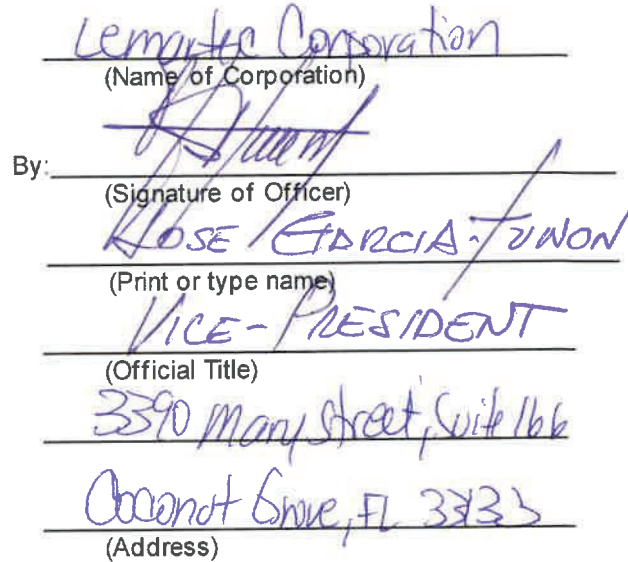 Lemartec Corporation
(Name of Corporation)
By:
(Signature of Officer)
JOSE GARCIA-TUNON
(Print or type name)
VICE-PRESIDENT
(Official Title)
3390 Mary Street, Suite 166
Coconut Grove, FL 33133
(Address)